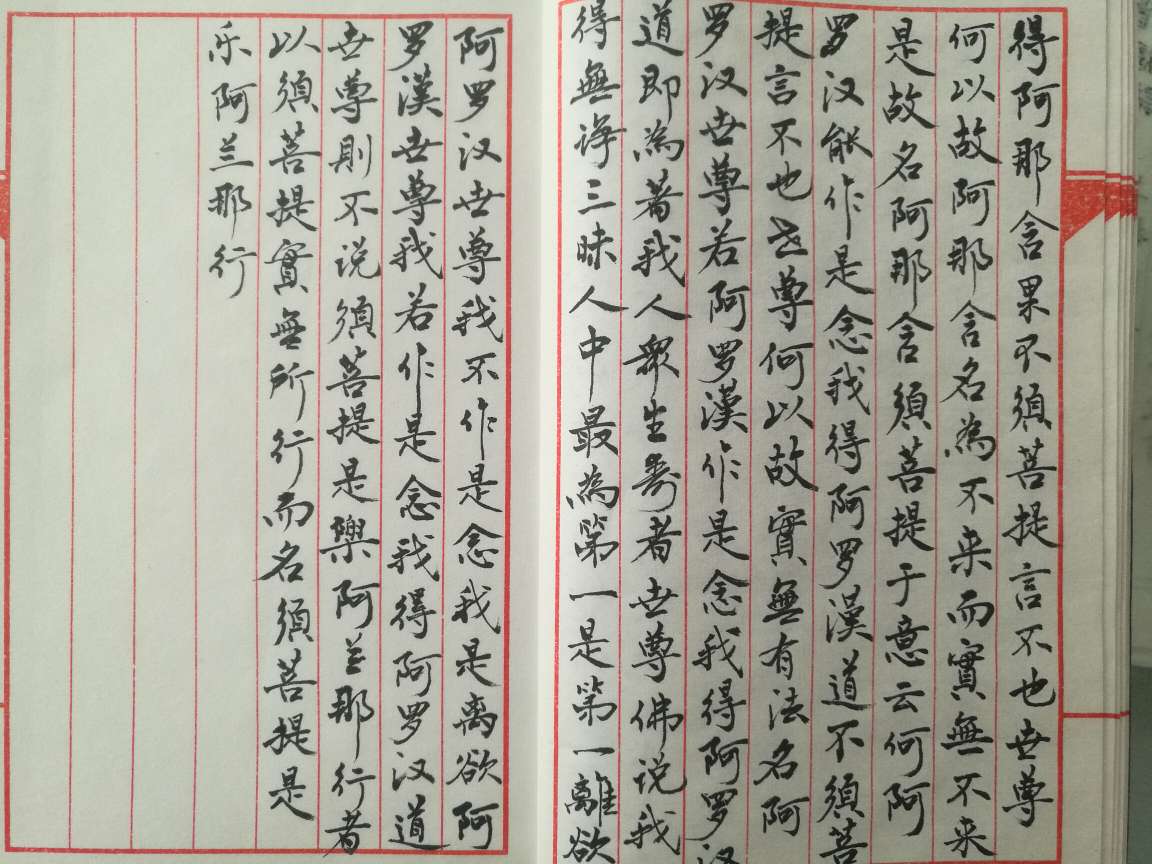 得阿那含果不須菩提言不也世尊
何以故阿那含名為不来而實無不来
是故名阿那含須菩提于意云何阿
罗汉能作是念我得阿罗漢道不須菩
提言不也世尊何以故實無有法名阿
罗汉世尊若阿罗漢作是念我得阿罗汉
道即為著我人衆生寿者世尊佛说我
得無诤三昧人中最為第一是第一離欲
阿罗汉世尊我不作是念我是离欲阿
罗漢世尊我若作是念我得阿罗汉道
世尊則不说須菩提是樂阿兰那行者
以須菩提實無所行而名須菩提是
乐阿兰那行